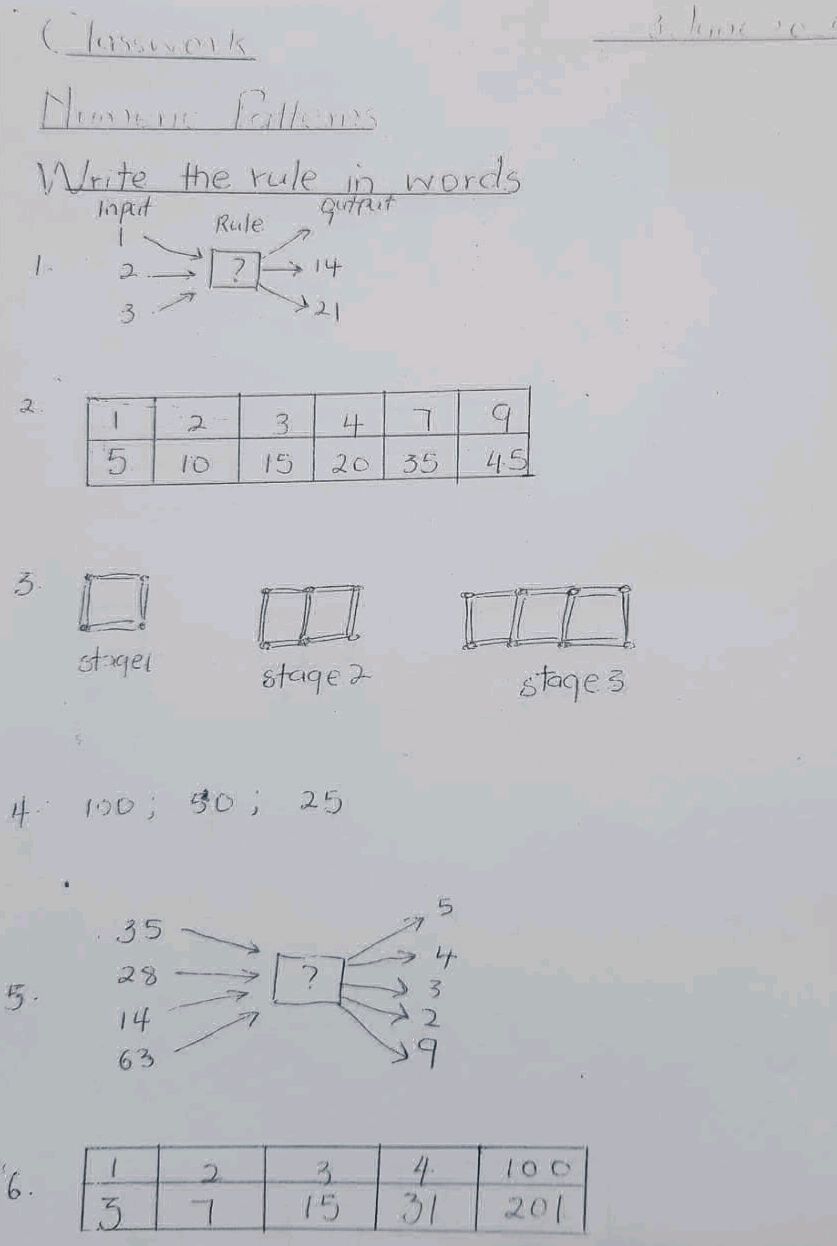 Classwork
Numeric Patterns
Write the rule in words
Input Rule Output
1
1. 2 ? 14
3 21
2. 1 2 3 4 7 9
5 10 15 20 35 45
3.
stage1 stage 2 stage 3
4. 100 ; 50 ; 25
35 5
28 ? 4
5. 3
14 2
63 9
6. 1 2 3 4 100
3 7 15 31 201